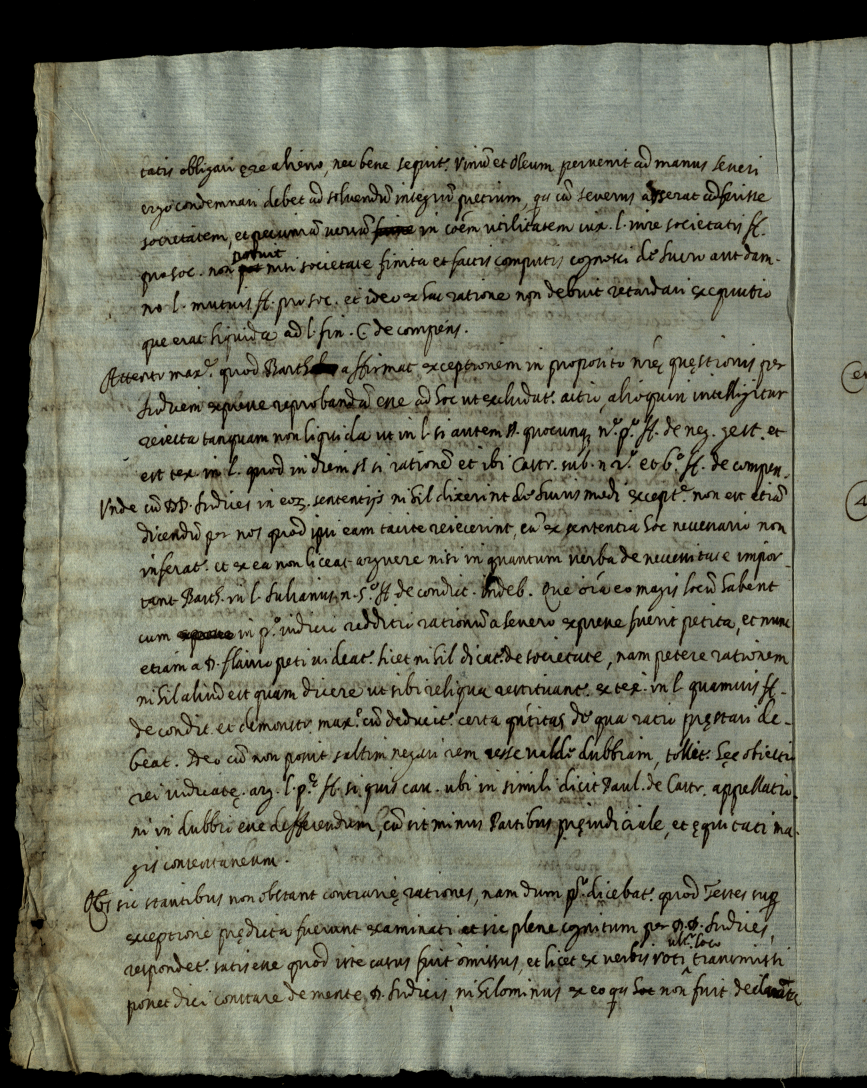 tatis obligari ęre alieno, nec bene sequit.r Vinũ et Oleum pervenit ad manus Severi
ergo condemnari debet ad solvendũ integrũ pretium, qa cũ Severus asserat adfuisse
societatem, et pecuniã versã in cõem utilitatem iux. l. iure societatis ff.
pro soc. non potuit nisi societate finita et factis computis cognosci de lucro aut dam-
no l. mutuis ff. pro soc. et ideo ex hac ratione non debuit retardari exequutio
que erat liquida ad l. fin. C. de compens.
Attento max.e quod Barth. affirmat exceptionem in proposito nrę quęstionis per
Iudicem expresse reprobandã esse ad hoc ut excludat.r actio, alioquin intelligitur
reiecta tanquam non liquida ut in l. si autem §. quocunq; n.o p.o ff. de neg. gest. et
est tex. in l. quod in diem §. si rationẽ et ibi Castr. sub. n. 2.o et 6.o ff. de compen-
Unde cũ DD. Iudices in eor. sententijs nihil dixerint de huius modi except.e non est etiã
dicendũ per nos quod ipsi eam tacite reiecerint, cũ ex sententia hoc necessario non
inferat.r et ex ea non liceat arguere nisi in quantum verba de necessitate impor-
tant Barth. in l. Iulianus n. 5.o ff. de condict. Indeb. Que oĩa eo magis locũ habent
cum in p.o iudicio redditio rationũ a Severo expresse fuerit petita, et nunc
etiam a D. Flavio peti videat.r licet nihil dicat.r de societate, nam petere rationem
nihil aliud est quam dicere ut sibi reliqua restituant.r ex tex. in l. quamvis ff.
de condit. et demonstr. max.e cũ deducit.r certa qñtitas de qua ratio pręstari de-
beat. Ideo cũ non possit saltim negari rem esse valde dubbiam, tollit.r hęc obiectio
rei iudicatę arg. l. p.e ff. si quis cau. ubi in simili dicit Paul. de Castr. appellatio-
ni in dubbio esse defferendum, cũ sit minus Partibus pręiudiciale, et ęquitati ma-
gis consentaneum.
His sic stantibus non obstant contrarię rationes, nam dum p.o dicebat.r quod Testes sup.
exceptione prędicta fuerunt examinati et sic plene cognitum per D.D. Iudices,
respondet.r satis esse quod iste casus fuit omissus et licet ex verbis voti ult.o loco transmissi
posset dici constare de mente D. Iudicis, nihilominus ex eo qa non fuit declarata